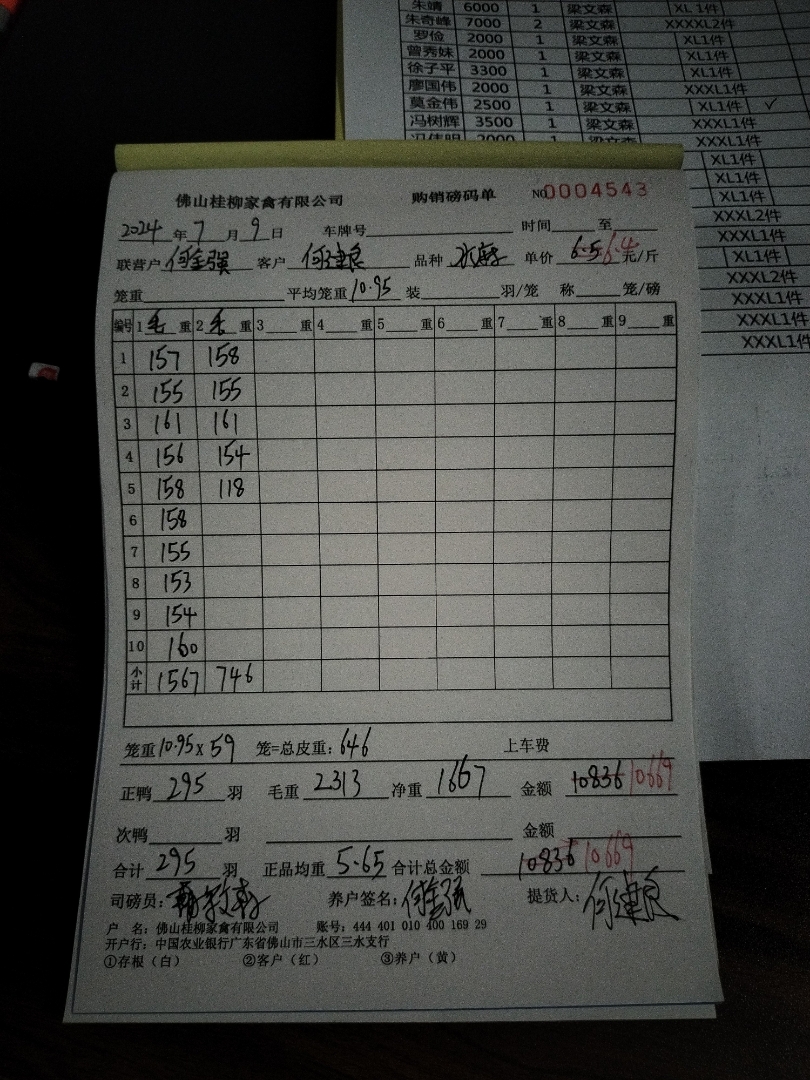 朱靖 6000 1 梁文森 XL 1件
朱奇峰 7000 2 梁文森 XXXXL2件
罗俭 2000 1 梁文森 XL1件
曾秀妹 2000 1 梁文森 XL1件
徐子平 3300 1 梁文森 XL1件
廖国伟 2000 1 梁文森 XXXL1件
莫金伟 2500 1 梁文森 XL1件 ✓
冯树辉 3500 1 梁文森 XXXL1件
2000 1 梁文森 XXXL1件
XL1件
XL1件
XL1件
XXXL2件
XXXL1件
XL1件
XXXL2件
XXXL1件
XXXL1件
XXXL1件
佛山桂柳家禽有限公司 购销磅码单 NO 0004543
2024年7月9日 车牌号 时间 至
联营户 何金强 客户 何建良 品种 单价 6.5 6.4 元/斤
笼重 平均笼重 10.95 装 羽/笼 称 笼/磅
编号 1 毛 重 2 毛 重 3 重 4 重 5 重 6 重 7 重 8 重 9 重
1 157 158
2 155 155
3 161 161
4 156 154
5 158 118
6 158
7 155
8 153
9 154
10 160
小计 1567 746
笼重 10.95 x 59 笼=总皮重: 646 上车费
正鸭 295 羽 毛重 2313 净重 1667 金额 10836 10669
次鸭 羽 金额
合计 295 羽 正品均重 5.65 合计总金额 10836 10669
司磅员: 养户签名: 何金强 提货人: 何建良
户 名: 佛山桂柳家禽有限公司 账号: 444 401 010 400 169 29
开户行: 中国农业银行广东省佛山市三水区三水支行
①存根（白） ②客户（红） ③养户（黄）